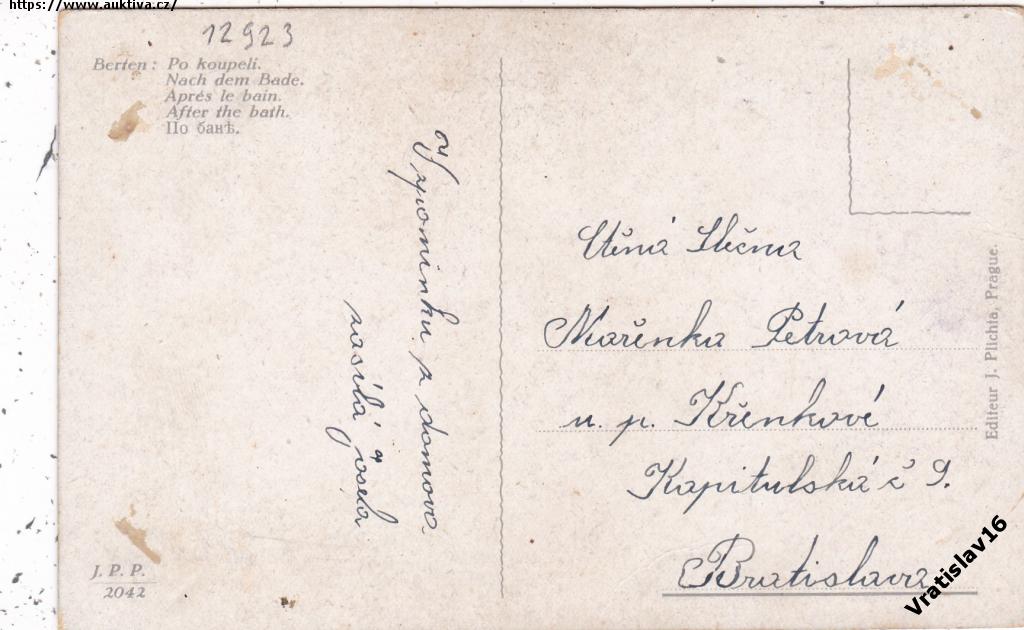 https://www.auktiva.cz/
12923
Berten: Po koupeli.
Nach dem Bade.
Aprés le bain.
After the bath.
По банѣ.
Vzpomínku z domova
zasílá
Ctěná Slečna
Mařenka Petrová
u. p. Křenkové
Kapitulská č 9.
Bratislava
Editeur J. Plichta, Prague.
J. P. P.
2042
Vratislav16